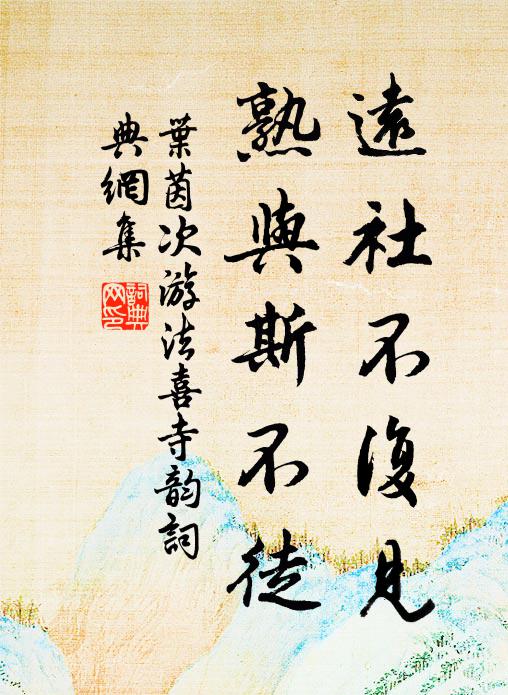 遠社不復見
熟與斯不徒
葉茵次游法喜寺韵詞
典網集
詞典
网印